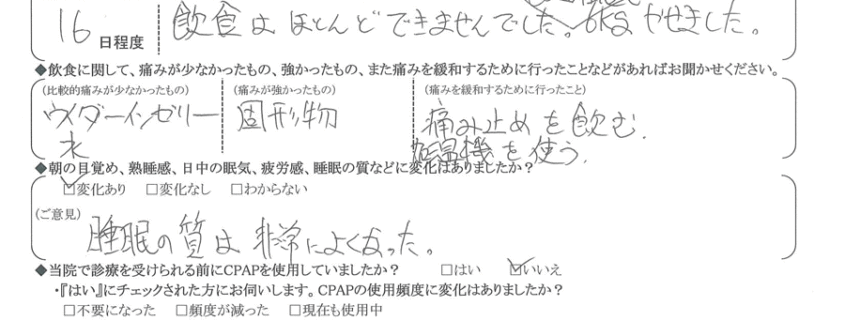 16 日程度 飲食は ほとんど できませんでした。6kg やせました。
◆飲食に関して、痛みが少なかったもの、強かったもの、また痛みを緩和するために行ったことなどがあればお聞かせください。
(比較的痛みが少なかったもの) (痛みが強かったもの) (痛みを緩和するために行ったこと)
ウイダーインゼリー 固形物 痛み止めを飲む.
水 加湿機を使う.
◆朝の目覚め、熟睡感、日中の眠気、疲労感、睡眠の質などに変化はありましたか?
☑変化あり □変化なし □わからない
(ご意見)
睡眠の質は 非常によくなった。
◆当院で診療を受けられる前にCPAPを使用していましたか? □はい ☑いいえ
・『はい』にチェックされた方にお伺いします。CPAPの使用頻度に変化はありましたか?
□不要になった □頻度が減った □現在も使用中